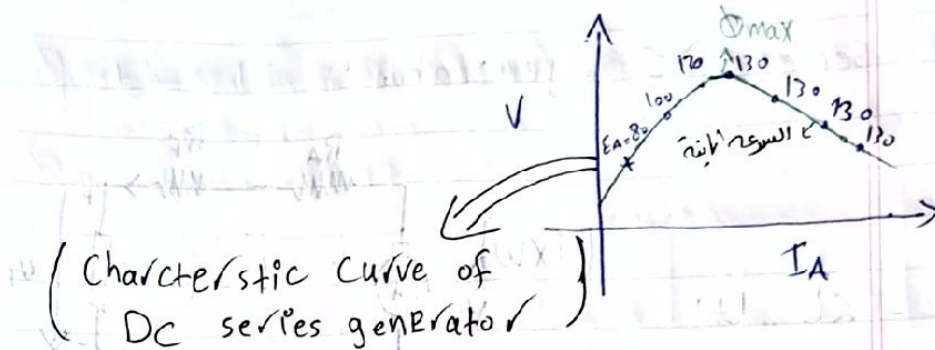 Φmax
120 130
130
100
130
V
EA=80
130
السرعة ثابتة
IA
(Charcterstic Curve of
DC series generator)